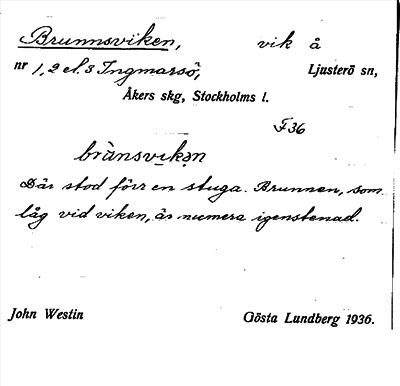 Brunnsviken, vik å
nr 1, 2 el. 3 Ingmarsö, Ljusterö sn,
Åkers skg, Stockholms l.
F36
brùnsvikən
Där stod förr en stuga. Brunnen, som
låg vid viken, är numera igenstenad.
John Westin Gösta Lundberg 1936.